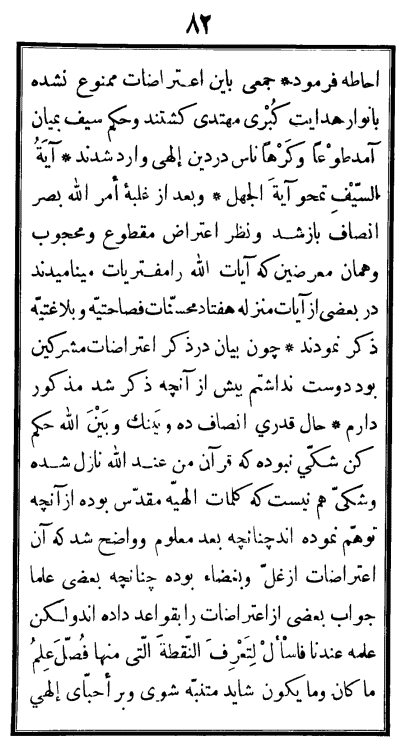 ٨٢
احاطه فرمود* جمعی باین اعتراضات ممنوع نشده
بانوار هدایت کُبْری مهتدی کشتند وحکم سیف بمیان
آمد طوْعاً وکَرْهاً ناس در دین إلهی وارد شدند* آیَةُ
السّیْفِ تمحو آیةَ الجهل* وبعد از غلبهٔ أمر الله بصر
انصاف باز شد ونظر اعتراض مقطوع ومحجوب
وهمان معرضین که آیات الله را مفتریات مینامیدند
در بعضی از آیات منزله هفتاد محسّنات فصاحتیّه وبلاغتیّه
ذکر نمودند* چون بیان در ذکر اعتراضات مشرکین
بود دوست نداشتم بیش از آنچه ذکر شد مذکور
دارم* حال قدري انصاف ده وبَینك وبَیْنَ الله حکم
کن شکّي نبوده که قرآن من عند الله نازل شده
وشکیّ هم نیست که کلمات الهیّه مقدّس بوده از آنچه
توهّم نموده اند چنانچه بعد معلوم وواضح شد که آن
اعتراضات از غلّ وبغضاء بوده چنانچه بعضی علما
جواب بعضی از اعتراضات را بقواعد داده اند ولکن
علمه عندنا فاسْألْ لِتَعْرِفَ النّقطةَ الّتی منها فُصّلَ عِلمُ
ما کان وما یکون شاید متنبّه شوی وبر أحبّای إلهي